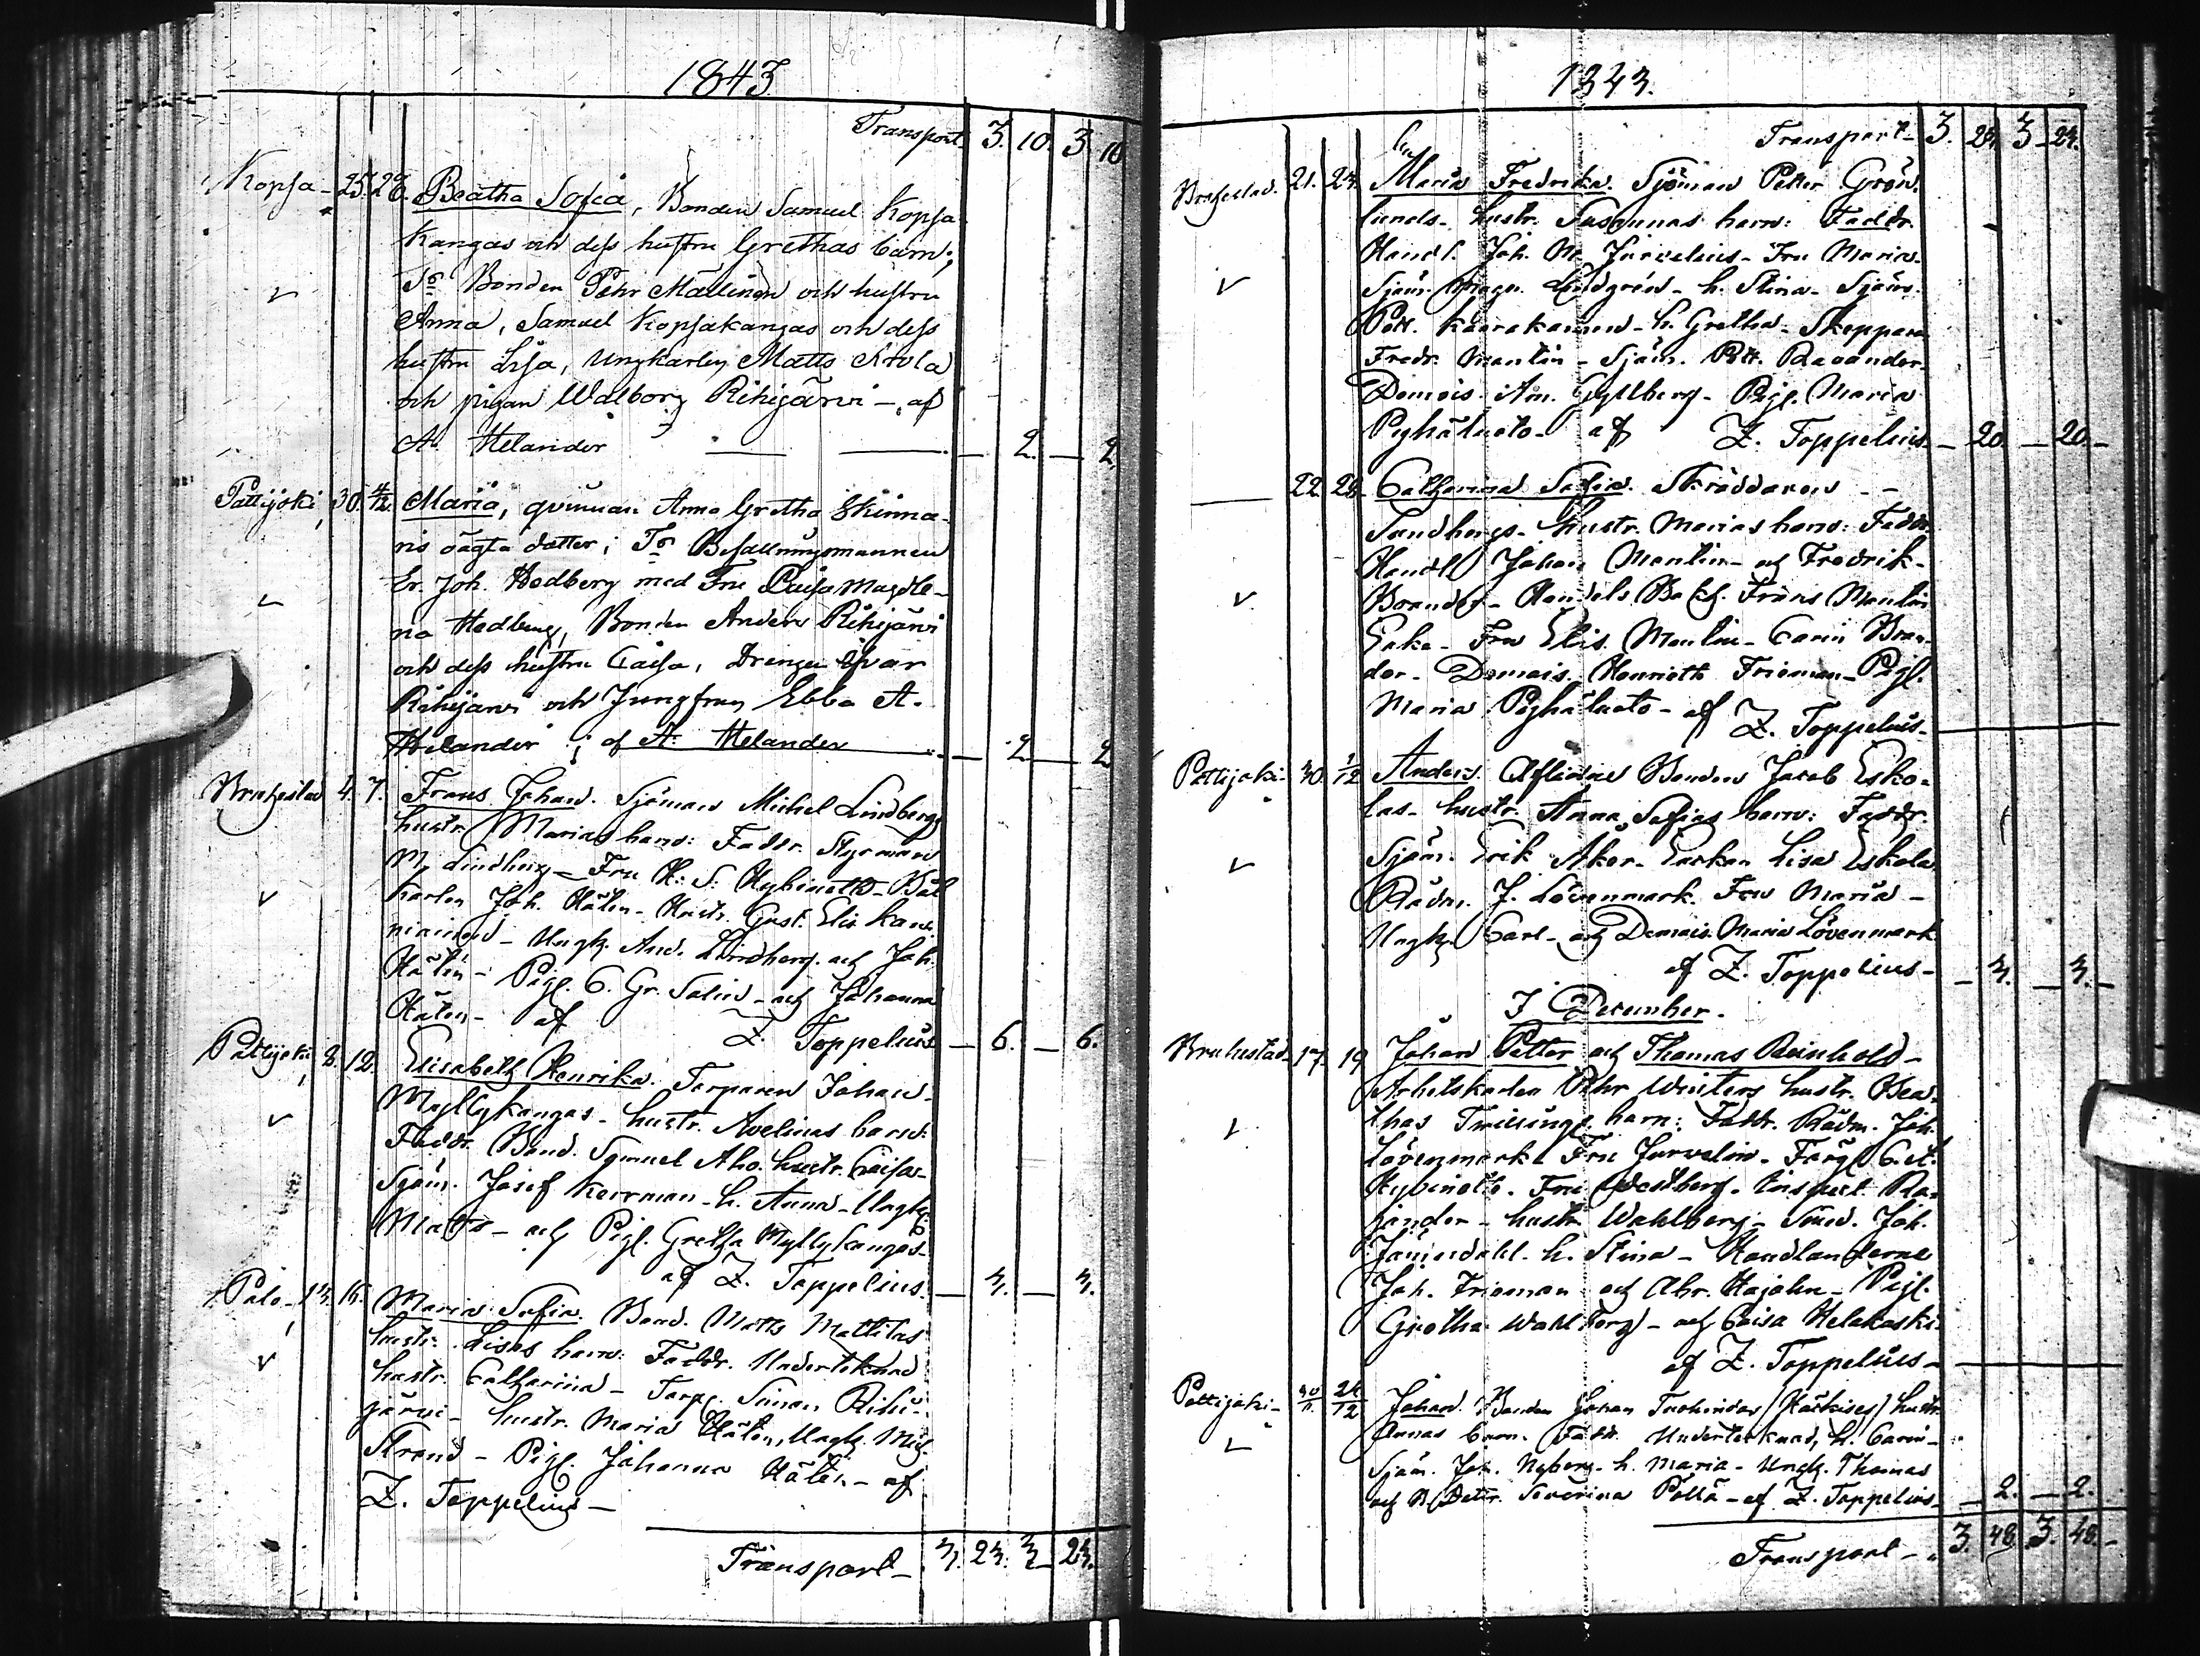 1843
Transport 3. 10. 3. 10
Kopsa 25. 28. Beatha Sofia, Bonden Samuel Kopsa
kangas och dess hustru Grethas barn;
Bonden Pehr Mälinen och hustru
Anna, Samuel Kopsakangas och dess
hustru Lisa, ungkarlen Matts
och pigan Walborg Rihijärvi - af
A. Helander 2. 2
Pattijoki 30. 4/12 Maria, qvinnan Anna Gretha Skinna-
ris oägta dotter; Befallningsmannen
Er. Joh. Hedberg med Fru Caisa Magdle-
na Hedberg, Bonden Anders Rihijärvi
och dess hustru Caisa, Drengen Ifvar
Rihijärvi och Jungfrun Ebba A.
Helander; af A. Helander 2 2
Brahestad 4. 7. Frans Johan. Sjöman Michel Lindbergs
hustr. Marias barn: Faddr. Styrman
M. Lindberg - Fru H. S. Hybinette - Båt
karlen Joh. Håten - Hustr. Gust. Elis.
- Ungk. And. Lindberg och Joh.
Håten - Pigl. C. Gr. Salin - och Johanna
Håten - af Z. Toppelius 6. 6.
Pattijoki 8. 12. Elisabeth Henrika. Torparen Johan
Myllykangas - hustr. Avelinas barn:
Faddr. Bond. Samuel Aho. hustr. Caisa -
Sjöm. Josef Kerrman - h. Anna - Ungk.
Matts - och Pigl. Gretha Myllykangas -
af Z. Toppelius 3. 3.
Palo 13. 16. Maria Sofia. Bond. Matts Mattilas
hustr. Lisas barn: Faddr. Underteknad
hustr. Catharina - Torp. Simon Rihi-
järvi - hustr. Maria Håten, Ungk. Mich.
Strand - Pigl. Johanna Håten - af
Z. Toppelius -
Transport 3. 23. 3 23.
1843.
Transport - 3. 23. 3 23.
Brahestad. 21. 24. Maria Fredrika. Sjöman Petter Grön-
lunds - hustr. Susannas barn: Faddr.
Handl. Joh. M. Jurvelius - Fru Maria.
Sjöm. Lindgrén - h. Stina - Sjöm.
Pett. - h. Gretha - Skepparen
Fredr. Montin - Sjöm. Pett. Ravander.
Demois. Am. Gyllberg - Pigl. Maria
Pighäluoto - af Z. Toppelius - 20. - 20. -
22 26 Catharina Sofia. Skräddaren
Sandbergs - hustr. Marias barn: Faddr.
Handl. Johan Montin - och Fredrik
Brander - Handels Frans Montin
Enke - Fru Elis. Montin - Carin Bran-
der - Demois. Henriette Frieman - Pigl.
Maria Pighäluoto - af Z. Toppelius -
Pattijoki 30. 1/12 Anders. Aflidne Bonden Jacob Esko-
las - hustr. Anna Sofias barn: Faddr.
Sjöm. Erik Åker - Enkan Lisa Eskola
Rådm. J. Lövenmark. Fru Maria -
Ungk. Carl - och Demois. Maria Lövenmark
af Z. Toppelius - 3. 3. -
I December.
Brahestad 17. 19 Johan Petter och Thomas Reinhold -
Arbetskarlen Pehr Winters hustr. Bea-
thas Twillings barn: Faddr. Rådm. Joh.
Lövenmark Fru Jurvelin - Färg. C. A.
Hybinette. Fru Westberg. Inspect. Ra-
jander - hustr. Wahlberg - Smed. Joh.
h. Stina - Handlanderne
Joh. Frieman och Abr. Hajalin - Pigl.
Gretha Wahlberg - och Caisa Kelakoski
af Z. Toppelius -
Pattijoki - 30/11 26/12 Johan. Bonden Johan hustr.
Annas barn. Faddr. Undertecknad, h. Carin -
Sjöm. Joh. Nyberg - h. Maria - Ungk. Thomas
och B. Dottr. Severina - af Z. Toppelius - 2. 2. -
Transport - 3. 48. 3. 48. -